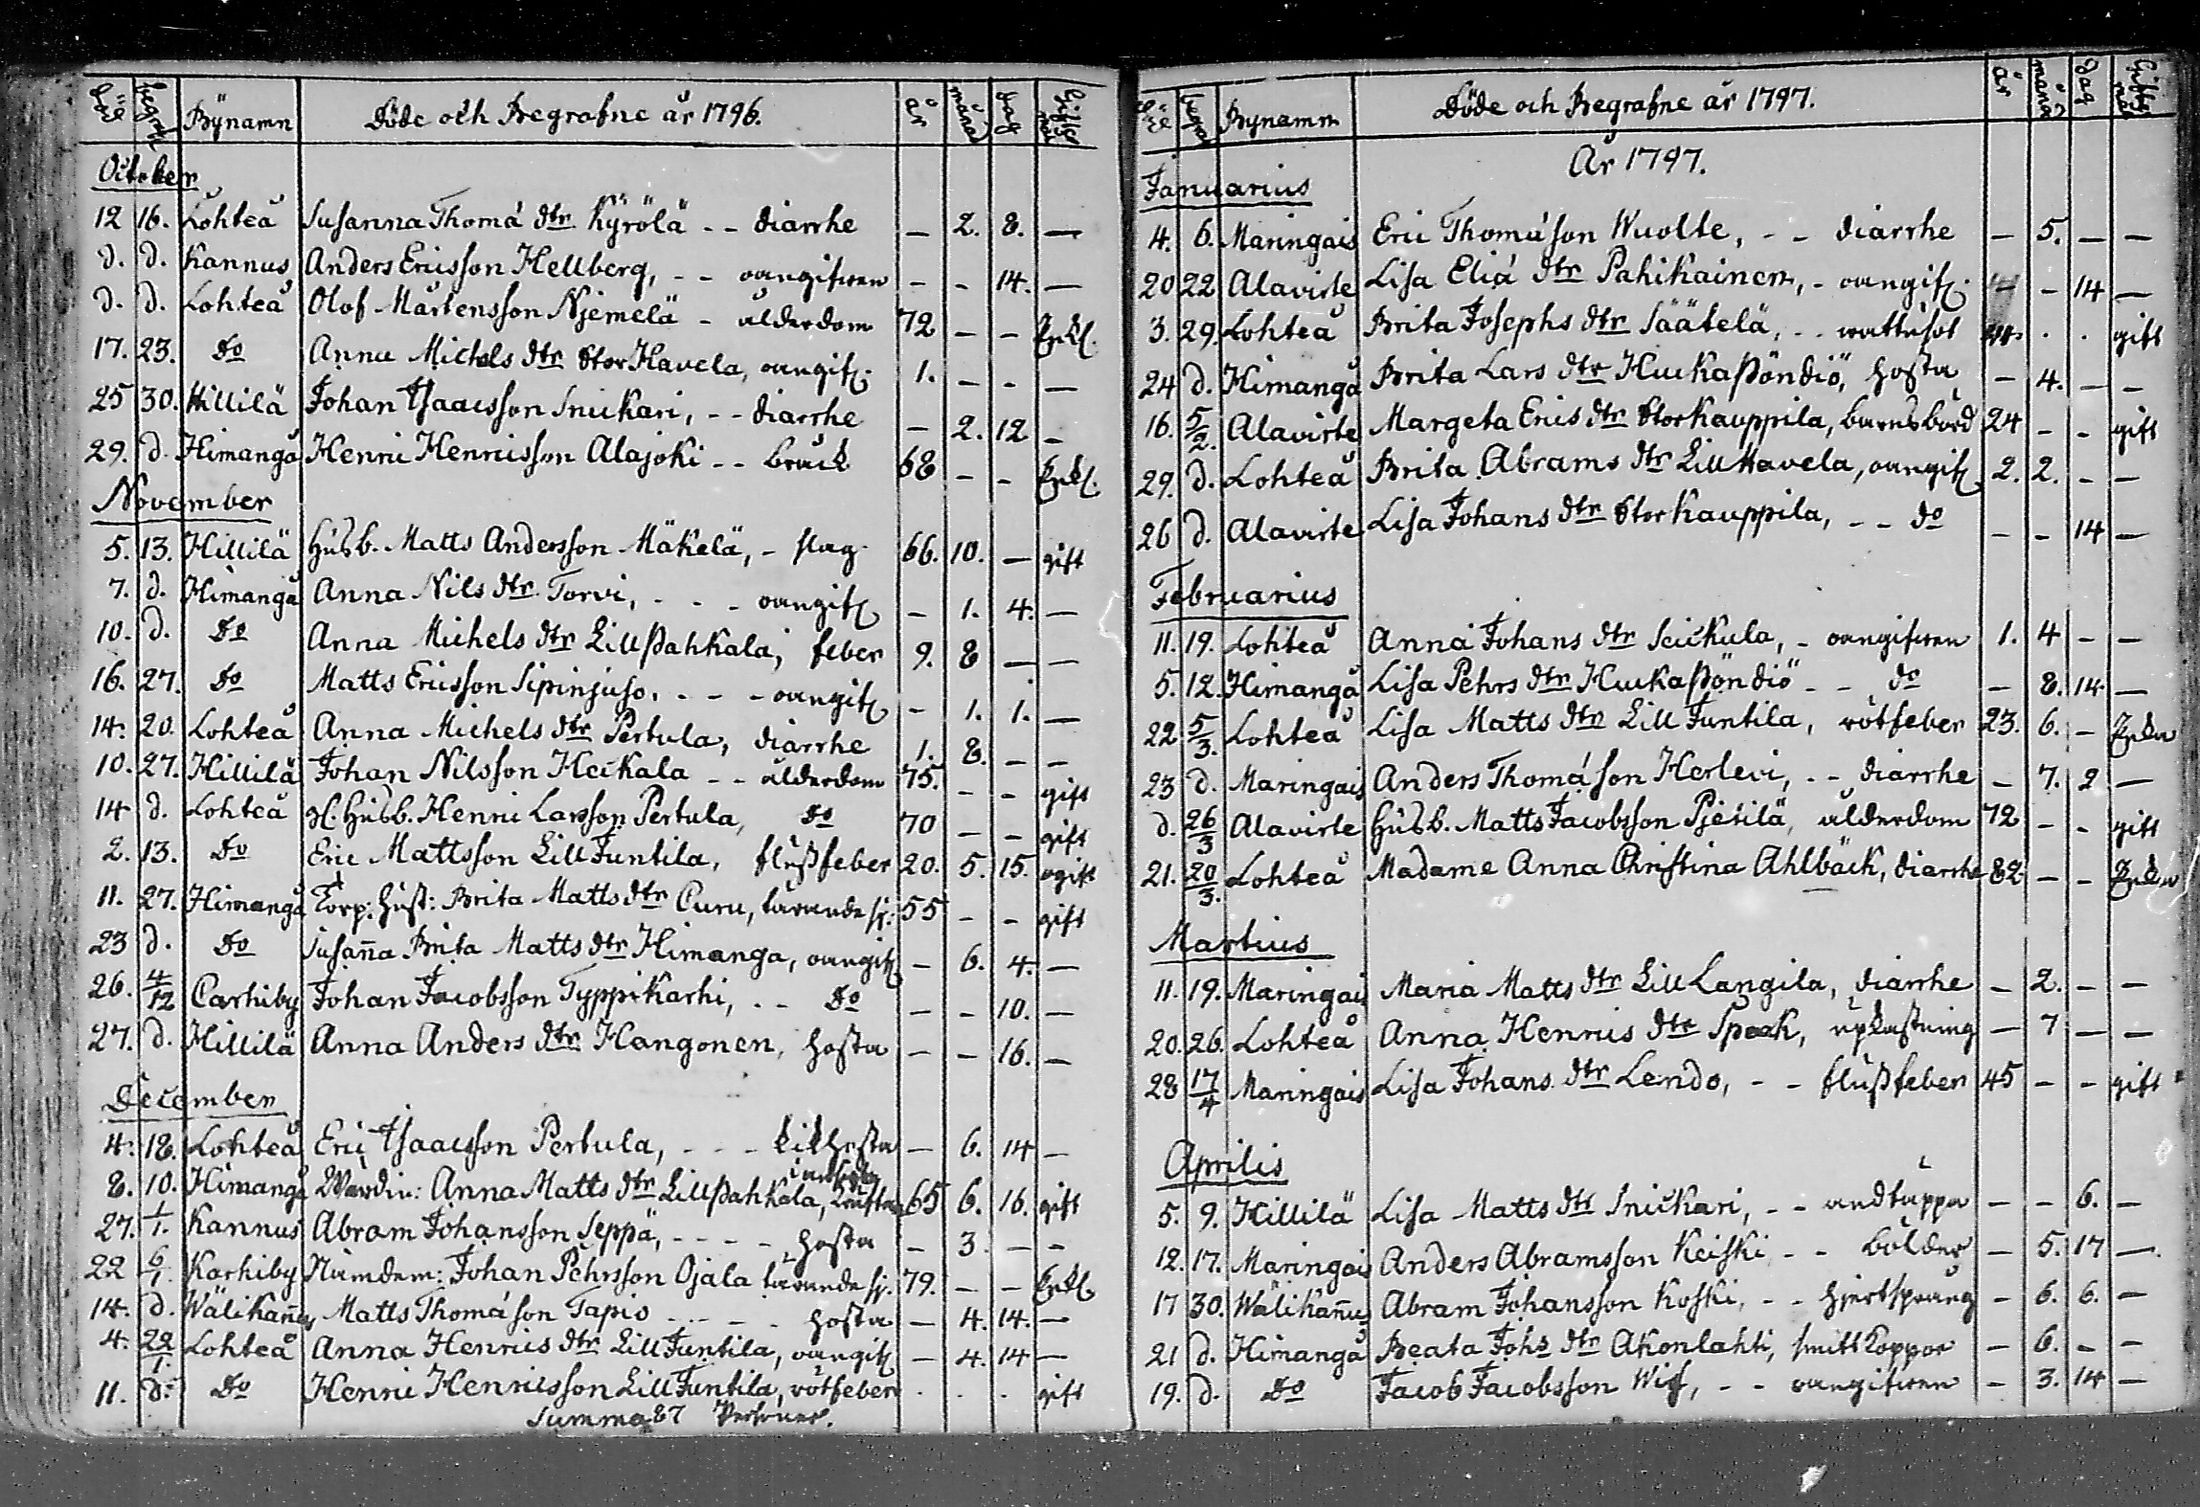 Död begraf. Bÿnamn Döde och Begrafne år 1796. år månad dag Giftermål
October
12 16. Lohteå Susanna Thomæ dtr Kÿrölä - - diarrhe — 2. 8. —
d. d. Kannus Anders Ericsson Hellberg, - - oangifwen - - 14. —
d. d. Lohteå Olof Mårtensson Njemelä - ålderdom 72 — — Enkl.
17. 23. Do Anna Michels dtr StorHavela, oangif. 1. — - —
25 30. Hillilä Johan Isaacsson Snickari, - - diarrhe — 2. 12 —
29. d. Himangå Henric Henricsson Alajoki - - bråck 68 — - Enkl.
November
5. 13. Hillilä Husb. Matts Andersson Mäkelä, - slag. 66. 10. — gift
7. d. Himangå Anna Nils dtr Torvi, - - - oangif. — 1. 4. —
10. d. Do Anna Michels dtr LillPahkala, feber 9. 8 — —
16. 27. Do Matts Ericsson Sipinjuso, - - - oangif. - 1. 1. —
14. 20. Lohteå Anna Michels dtr Pertula, diarrhe 1. 8. — —
10. 27. Hillilä Johan Nilsson Heikala - - ålderdom 75. - - gift
14 d. Lohteå gl. Husb. Henric Larsson Pertula, Do 70 — - gift
2. 13. Do Eric Mattsson LillJuntila, flussfeber 20. 5. 15. ogift
11. 27. Himangå Torp: Hust: Brita Matts dtr Curu, tärande sj: 55 - - gift
23 d. Do Susan̄a Brita Matts dtr Himanga, oangif. — 6. 4. —
26. 4/12 Carhiby Johan Jacobsson Typpikarhi, - - Do — — 10. —
27. d. Hillilä Anna Anders dtr Hangonen, hosta — — 16. —
December
4. 18. Lohteå Eric Isaacsson Pertula, - - - kikhosta — 6. 14 —
8. 10. Himangå Anna Matts dtr LillPahkala, 65 6. 16. gift
27. 1/1. Kannus Abram Johansson Seppä, - - - - hosta — 3. — —
22 6/1. Karhiby Nämdem: Johan Pehrsson Ojala tärande sj. 79. — — Enkl.
14. d. Wälikan̄us Matts Thomæson Tapio - - - - hosta — 4. 14. —
4. 22/1. Lohteå Anna Henrics dtr LillJuntila, oangif. — 4. 14 —
11. d. Do Henric Henricsson LillJuntila, rötfeber . . . gift
Summa 87 Personer.
Död begraf. Bynamn Döde och Begrafne år 1797. år månad dag Giftermål
År 1797.
Januarius
4. 6. Maringais Eric Thomæson Wuolle, - - diarrhe — 5. — —
20 22 Alavirte Lisa Eliæ dtr Pahikainen, - oangif. — 14 —
3. 29. Lohteå Brita Josephs dtr Säätelä, - - wattusot . . gift
24 d. Himangå Brita Lars dtr HuckaPöndiö, hosta — 4. — —
16. 5/2. Alavirte Margeta Erics dtr StorKauppila, barnsbörd 24 - - gift
29. d. Lohteå Brita Abrams dtr LillHavela, oangif. 2. 2. - —
26 d. Alavirte Lisa Johans dtr StorKauppila, - - do — - 14 —
Februarius
11. 19. Lohteå Anna Johans dtr Scickula, - oangifwen 1. 4 — —
5. 12. Himangå Lisa Pehrs dtr HuckaPöndiö - - do — 8. 14 —
22. 5/3. Lohteå Lisa Matts dtr LillJuntila, rötfeber 23. 6. — Enka
23 d. Maringais Anders Thomæson Herlevi, - - diarrhe — 7. 2 —
d. 26/3 Alavirte Husb. Matts Jacobsson Pjetilä, ålderdom 72 - - gift
21. 20/3. Lohteå Madame Anna Christina Ahlbäck, diarrhe 82 — — Enka
Martius
11. 19. Maringais Maria Matts dtr LillLangila, diarrhe — 2. — —
20. 26. Lohteå Anna Henrics dtr Speck, upkastning — 7 — —
28 17/4 Maringais Lisa Johans dtr Lendo, - - flussfeber 45 — - gift
Aprilis
5. 9. Hillilä Lisa Matts dtr Snickari, - - andtäppa — — 6. —
12. 17. Maringais Anders Abramsson Keiski - - bölder — 5. 17 —
17 30. Wälikan̄us Abram Johansson Koski, - - hjertsprång — 6. 6. —
21 d. Himangå Beata Johs dtr Akonlahti, smittkoppor — 6. - —
19. d. Do Jacob Jacobsson - - oangifwen — 3. 14 —